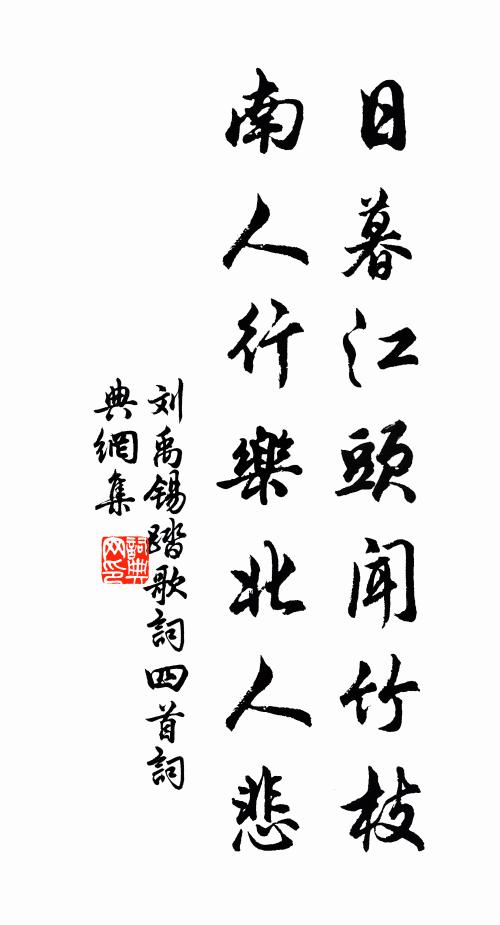 日暮江頭聞竹枝
南人行樂北人悲
刘禹锡踏歌詞四首詞
典網集
詞典
网印